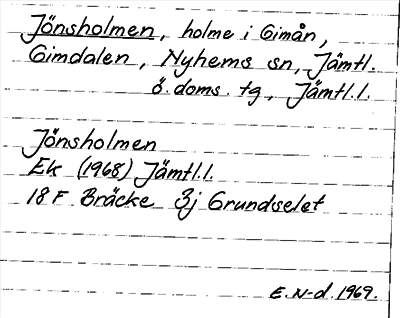 Jönsholmen, holme i Gimån,
Gimdalen, Nyhems sn, Jämtl.
ö. doms. tg, Jämtl.l.
Jönsholmen
Ek (1968) Jämtl.l.
18 F Bräcke 3j Grundselet
E.N-d. 1969.